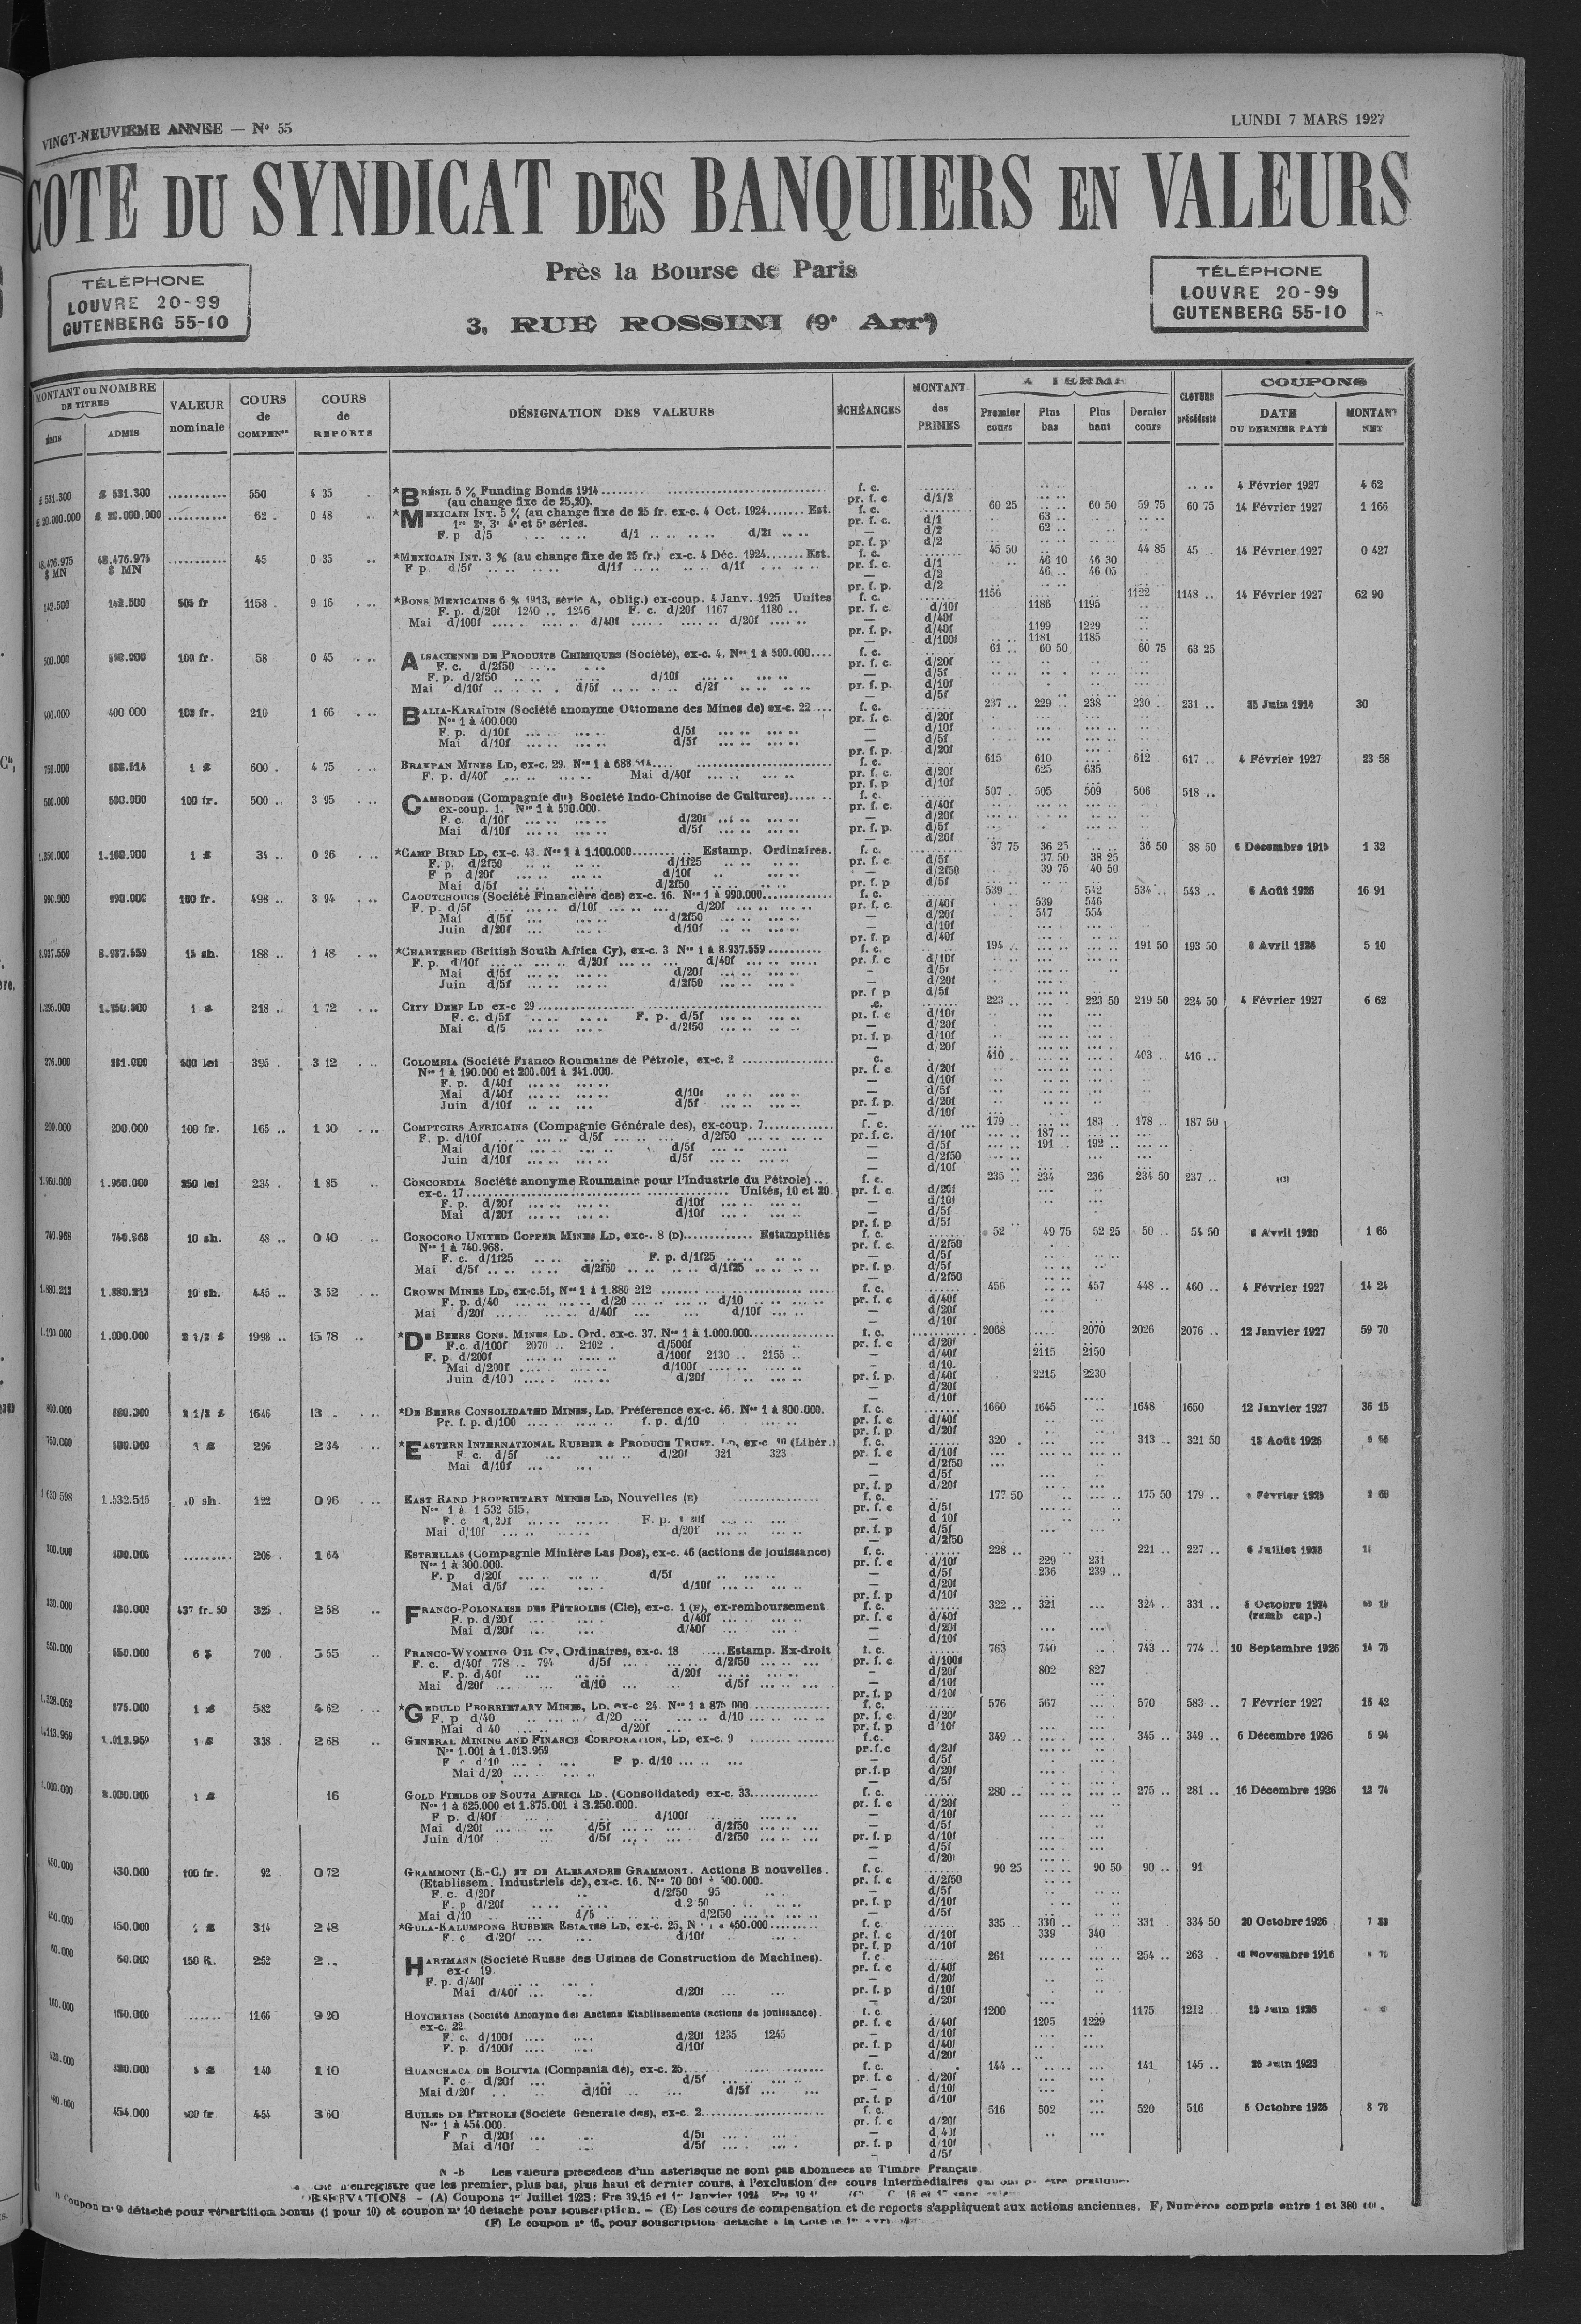 VINGT-NEUVIEME ANNEE — N° 55
LUNDI 7 MARS 1927
COTE DU SYNDICAT DES BANQUIERS EN VALEURS
Près la Bourse de Paris
3, RUE ROSSINI (9e Arrt)
TÉLÉPHONE
LOUVRE 20-99
GUTENBERG 55-10
TÉLÉPHONE
LOUVRE 20-99
GUTENBERG 55-10
MONTANT ou NOMBRE DE TITRES
ÉMIS ADMIS
VALEUR nominale
COURS de COMPENon
COURS de REPORTS
DÉSIGNATION DES VALEURS
ÉCHÉANCES
MONTANT des PRIMES
A TERME
Premier cours Plus bas Plus haut Dernier cours
CLOTURE précédente
COUPONS
DATE DU DERNIER PAYÉ
MONTANT NET
£ 531.300 £ 531.300 550 4 35 *BRÉSIL 5 % Funding Bonds 1914 f. c. 4 Février 1927 4 62
(au change fixe de 25,20). pr. f. c d/1/2
£ 20.000.000 £ 20.000.000 62 0 48 *MEXICAIN INT. 5 % (au change fixe de 25 fr. ex-c. 4 Oct. 1924 Est. f. c. 60 25 60 50 59 75 60 75 14 Février 1927 1 166
1re 2e, 3e 4e et 5e séries. pr. f. c. d/1 63
F. p d/5 d/1 d/2f — d/2 62
pr. f. p. d/2
48.476.975 $ MN 48.476.975 $ MN 45 0 35 *MEXICAIN INT. 3 % (au change fixe de 25 fr.) ex-c. 4 Déc. 1924 Est. f. c. 45 50 44 85 45 14 Février 1927 0 427
F p. d/5f d/1f d/1f pr. f. c. d/1 46 10 46 30
— d/2 46 46 05
pr. f. p. d/2
142.500 142.500 505 fr 1158 9 16 *BONS MEXICAINS 6 % 1913, série A, oblig.) ex-coup. 4 Janv. 1925 Unites f. c. 1156 1122 1148 14 Février 1927 62 90
F. p. d/20f 1240 1246 F. c. d/20f 1167 1180 pr. f. c. d/10f 1186 1195
Mai d/100f d/40f d/20f — d/40f
pr. f. p. d/40f 1199 1229
— d/100f 1181 1185
500.000 500.000 100 fr. 58 0 45 ALSACIENNE DE PRODUITS CHIMIQUES (Société), ex-c. 4. Nos 1 à 500.000 f. c. 61 60 50 60 75 63 25
F. c. d/2f50 pr. f. c. d/20f
F. p. d/2f50 d/10f — d/5f
Mai d/10f d/5f d/2f pr. f. p. d/10f
— d/5f
400.000 400 000 100 fr. 210 1 66 BALIA-KARAÏDIN (Société anonyme Ottomane des Mines de) ex-c. 22 f. c. 237 229 238 230 231 25 Juin 1914 30
Nos 1 à 400.000 pr. f. c. d/20f
F. p. d/10f d/5f — d/10f
Mai d/10f d/5f — d/5f
pr. f. p. d/20f
750.000 688.514 1 £ 600 4 75 BRAKPAN MINES LD, ex-c. 29. Nos 1 à 688 514 f. c. 615 610 612 617 4 Février 1927 23 58
F. p. d/40f Mai d/40f pr. f. c. d/20f 625 635
pr. f. p d/10f
500.000 500.000 100 fr. 500 3 95 CAMBODGE (Compagnie du) Société Indo-Chinoise de Cultures) f. c. 507 505 509 506 518
ex-coup. 1. Nos 1 à 500.000. pr. f. c. d/40f
F. c. d/10f d/20f — d/20f
Mai d/10f d/5f pr. f. p. d/5f
— d/20f
1.350.000 1.100.000 1 £ 34 0 26 *CAMP BIRD LD, ex-c. 43. Nos 1 à 1.100.000 Estamp. Ordinaires. f. c. 37 75 36 25 36 50 38 50 6 Décembre 1915 1 32
F. p. d/2f50 d/1f25 pr. f. c d/5f 37 50 38 25
F p d/20f d/10f — d/2f50 39 75 40 50
Mai d/5f d/2f50 pr. f. p d/5f
990.000 990.000 100 fr. 498 3 94 CAOUTCHOUCS (Société Financière des) ex-c. 16. Nos 1 à 990.000 f. c. 539 542 534 543 6 Août 1926 16 91
F. p. d/5f d/10f d/20f pr. f. c. d/40f 539 546
Mai d/5f d/2f50 — d/20f 547 554
Juin d/20f d/10f — d/10f
pr. f. p d/40f
8.937.559 8.937.559 15 sh. 188 1 48 *CHARTERED (British South Africa Cy), ex-c. 3 Nos 1 à 8.937.559 f. c. 194 191 50 193 50 8 Avril 1926 5 10
F. p. d/10f d/20f d/40f pr. f. c d/10f
Mai d/5f d/20f — d/5f
Juin d/5f d/2f50 — d/20f
pr. f p d/5f
1.295.000 1.250.000 1 £ 218 1 72 CITY DEEP LD ex-c 29 c. 223 223 50 219 50 224 50 4 Février 1927 6 62
F. c. d/5f F. p. d/5f pr. f. c d/10f
Mai d/5 d/2f50 — d/20f
pr. f. p d/10f
— d/20f
276.000 231.000 500 lei 395 3 12 COLOMBIA (Société Franco Roumaine de Pétrole, ex-c. 2 c. 410 403 416
Nos 1 à 190.000 et 200.001 à 241.000. pr. f. c d/20f
F. p. d/40f — d/10f
Mai d/40f d/10f — d/5f
Juin d/10f d/5f pr. f. p. d/20f
— d/10f
200.000 200.000 100 fr. 165 1 30 COMPTOIRS AFRICAINS (Compagnie Générale des), ex-coup. 7 f. c. 179 183 178 187 50
F. p. d/10f d/5f d/2f50 pr. f. c. d/10f 187
Mai d/10f d/5f — d/5f 191 192
Juin d/10f d/5f — d/2f50
— d/10f
1.950.000 1.950.000 250 lei 234 1 85 CONCORDIA Société anonyme Roumaine pour l'Industrie du Pétrole) f. c. 235 234 236 234 50 237
ex-c. 17 Unités, 10 et 20 pr. f. c d/20f
F. p. d/20f d/10f — d/10f
Mai d/20f d/10f — d/5f
pr. f. p d/5f
740.968 740.968 10 sh. 48 0 40 COROCORO UNITED COPPER MINES LD, exc-. 8 (D) Estampillés f. c. 52 49 75 52 25 50 54 50 8 Avril 1920 1 65
Nos 1 à 740.968. pr. f. c. d/2f50
F. c. d/1f25 F. p. d/1f25 — d/5f
Mai d/5f d/2f50 d/1f25 pr. f. p. d/5f
— d/2f50
1.880.212 1.880.212 10 sh. 445 3 52 CROWN MINES LD, ex-c.51, Nos 1 à 1.880 212 f. c. 456 457 448 460 4 Février 1927 14 24
F. p. d/40 d/20 d/10 pr. f. c d/40f
Mai d/20f d/40f d/10f — d/20f
— d/10f
1.000.000 2 1/2 £ 1998 15 78 *DE BEERS CONS. MINES LD. Ord. ex-c. 37. Nos 1 à 1.000.000 f. c. 2068 2070 2026 2076 12 Janvier 1927 59 70
F.c. d/100f 2070 2102 d/500f pr. f. c d/20f
F. p. d/200f d/100f 2130 2155 — d/40f 2115 2150
Mai d/200f d/100f — d/10.
Juin d/100 d/20f pr. f. p. d/40f 2215 2230
— d/20f
— d/10f
800.000 800.000 2 1/2 £ 1646 13 *DE BEERS CONSOLIDATED MINES, LD. Préférence ex-c. 46. Nos 1 à 800.000. f. c. 1660 1645 1648 1650 12 Janvier 1927 36 15
Pr. f. p. d/100 f. p. d/10 pr. f. c d/40f
pr. f. p d/20f
750.000 500.000 1 £ 296 2 34 *EASTERN INTERNATIONAL RUBBER & PRODUCE TRUST. LD, ex-c 10 (Libér.) f. c. 320 313 321 50 18 Août 1926
F. c. d/5f d/20f 321 323 pr. f. c d/10f
Mai d/10f — d/2f50
— d/5f
pr. f. p d/20f
1.532.515 10 sh. 122 0 96 EAST RAND PROPRIETARY MINES LD, Nouvelles (E) f. c. 177 50 175 50 179 Février 1925
Nos 1 à 1 532 515. pr. f. c d/5f
F. c d/20f F. p. — d 10f
Mai d/10f d/20f pr. f. p d/5f
— d/2f50
300.000 300.000 206 1 64 ESTRELLAS (Compagnie Minière Las Dos), ex-c. 46 (actions de jouissance) f. c. 228 221 227 6 Juillet 1926
Nos 1 à 300.000. pr. f. c d/10f 229 231
F. p d/20f d/5f — d/5f 236 239
Mai d/5f d/10f — d/20f
pr. f. p d/10f
330.000 437 fr. 50 325 2 58 FRANCO-POLONAISE DES PÉTROLES (Cie), ex-c. 1 (F), ex-remboursement f. c. 322 321 324 331 Octobre 1924
F. p. d/20f d/40f pr. f. c d/40f (remb cap.)
Mai d/20f d/40f — d/20f
— d/10f
550.000 550.000 6 $ 700 5 55 FRANCO-WYOMING OIL CY, Ordinaires, ex-c. 18 Estamp. Ex-droit f. c. 763 740 743 774 10 Septembre 1926 14 75
F. c. d/40f 778 794 d/5f d/2f50 pr. f. c d/100f
F. p. d/40f d/20f — d/20f 802 827
Mai d/20f d/10 d/5f — d/10f
pr. f. p d/10f
875.000 1 £ 582 4 62 *GEDULD PRORRIETARY MINES, LD. ex-c 24. Nos 1 à 875 000 f. c. 576 567 570 583 7 Février 1927 16 42
F. p d/40 d/20 d/10 pr. f. c. d/20f
Mai d 40 d/20f pr. f. p d 10f
1.013.959 1 £ 338 2 68 GENERAL MINING AND FINANCE CORPORATION, LD, ex-c. 9 f.c. 349 345 349 6 Décembre 1926 6 94
Nos 1.001 à 1.013.959 pr.f.c d/20f
F c d/10 F p. d/10 — d/5f
Mai d/20 pr.f.p d/20f
— d/5f
2.000.000 1 £ 16 GOLD FIELDS OF SOUTH AFRICA LD. (Consolidated) ex-c. 33 f. c. 280 275 281 16 Décembre 1926 12 74
Nos 1 à 625.000 et 1.875.001 à 3.250.000. pr. f. c d/20f
F p. d/40f d/100f — d/10f
Mai d/20f d/5f d/2f50 — d/5f
Juin d/10f d/5f d/2f50 pr. f. p d/10f
— d/5f
— d/20f
430.000 100 fr. 92 0 72 GRAMMONT (E.-C.) ET DE ALEXANDRE GRAMMONT. Actions B nouvelles. f. c. 90 25 90 50 90 91
(Etablissem. Industriels de), ex-c. 16. Nos 70 001 à 500.000. pr. f. c d/2f50
F. c. d/20f d/2f50 95 — d/5f
F. p d/20f d 2 50 pr. f. p d/10f
Mai d/10 d/5 d/2f50 — d/5f
450.000 450.000 1 £ 314 2 48 *GULA-KALUMPONG RUBBER ESTATES LD, ex-c. 25, N 450.000 f. c. 335 330 331 334 50 20 Octobre 1926
F. c d/20f d/10f pr. f. c d/10f 339 340
pr. f. p d/10f
60.000 60.000 150 R. 252 2 HARTMANN (Société Russe des Usines de Construction de Machines). f. c. 261 254 263 Novembre 1916
ex-c 19. pr. f. c d/40f
F. p. d/40f — d/20f
Mai d/40f d/20f pr. f. p d/10f
— d/20f
150.000 1166 9 20 HOTCHKISS (Société Anonyme des Anciens Etablissements (actions de jouissance). f. c. 1200 1175 1212 15 Juin 1926
ex-c. 22. pr. f. c d/40f 1205 1229
F. c. d/100f d/20f 1235 1245 — d/10f
F. p. d/100f d/10f pr. f. p d/40f
— d/20f
320.000 140 1 10 HUANCHACA DE BOLIVIA (Compania de), ex-c. 25 f. c. 144 141 145 26 Juin 1923
F. c. d/20f d/5f pr. f. c d/20f
Mai d/20f d/10f d/5f — d/10f
pr. f. p d/10f
454.000 454 3 60 HUILES DE PETROLE (Société Generale des), ex-c. 2 f. c. 516 502 520 516 6 Octobre 1926 8 78
Nos 1 à 454.000. pr. f. c d/20f
F p d/20f d/5f — d 40f
Mai d/10f d/5f pr. f. p d/10f
— d/5f
N -B Les valeurs precedees d'un asterisque ne sont pas abonnees au Timbre Français.
n'enregistre que les premier, plus bas, plus haut et dernier cours, à l'exclusion des cours intermediaires qui ont pu etre pratiques
OBSERVATIONS - (A) Coupons 1er Juillet 1923: Frs 39,15 et 1er Janvier 1924
Coupon n° 9 détaché pour répartition bonus (1 pour 10) et coupon n° 10 detaché pour souscription. — (E) Les cours de compensation et de reports s'appliquent aux actions anciennes. F) Numéros compris entre 1 et 380
(F) Le coupon n° 15, pour souscription detaché à la Cote le 1er